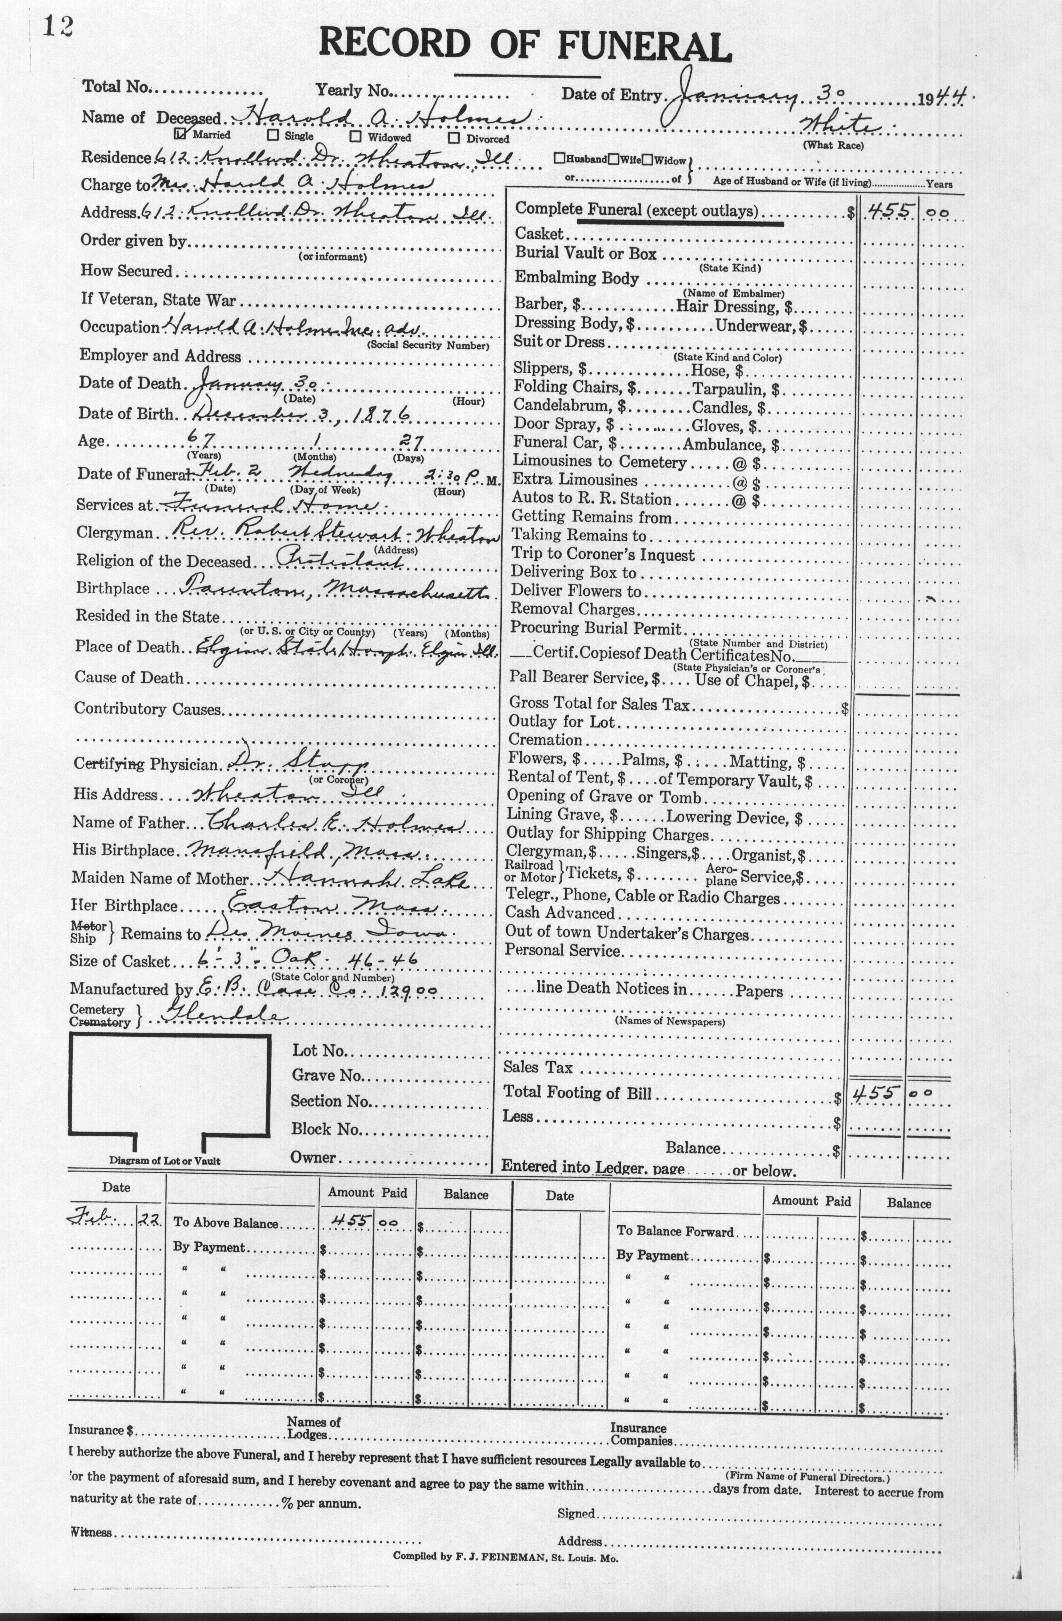 12
RECORD OF FUNERAL
Total No. Yearly No. Date of Entry January 30 1944.
Name of Deceased Harold A. Holmes. White.
☑ Married ☐ Single ☐ Widowed ☐ Divorced (What Race)
Residence 612 Knollwd Dr. Wheaton, Ill ☐Husband☐Wife☐Widow
or of Age of Husband or Wife (if living) Years
Charge to Mrs. Harold A. Holmes
Address 612 Knollwd Dr. Wheaton, Ill.
Order given by
(or informant)
How Secured
If Veteran, State War
Occupation Harold A. Holmes Inc. adv.
(Social Security Number)
Employer and Address
Date of Death January 30.
(Date) (Hour)
Date of Birth December 3, 1876
Age 67 1 27
(Years) (Months) (Days)
Date of Funeral Feb. 2 Wednesday 2:30 P. M.
(Date) (Day of Week) (Hour)
Services at Funeral Home.
Clergyman Rev. Robert Stewart - Wheaton
(Address)
Religion of the Deceased Protestant
Birthplace Taunton, Massachusetts
Resided in the State
(or U. S. or City or County) (Years) (Months)
Place of Death Elgin State Hosp. Elgin Ill.
Cause of Death
Contributory Causes
Certifying Physician Dr. Stapp
(or Coroner)
His Address Wheaton Ill.
Name of Father Charles E. Holmes
His Birthplace Mansfield, Mass.
Maiden Name of Mother Hannah Lake
Her Birthplace Easton Mass.
Motor
Ship } Remains to Des Moines Iowa.
Size of Casket 6'-3" - Oak - 46-46
(State Color and Number)
Manufactured by E. B. Case Co. 12900
Cemetery
Crematory } Glendale
Lot No.
Grave No.
Section No.
Block No.
Owner
Diagram of Lot or Vault
Complete Funeral (except outlays) $ 455 00
Casket
Burial Vault or Box
(State Kind)
Embalming Body
(Name of Embalmer)
Barber, $ Hair Dressing, $
Dressing Body, $ Underwear, $
Suit or Dress
(State Kind and Color)
Slippers, $ Hose, $
Folding Chairs, $ Tarpaulin, $
Candelabrum, $ Candles, $
Door Spray, $ Gloves, $
Funeral Car, $ Ambulance, $
Limousines to Cemetery @ $
Extra Limousines @ $
Autos to R. R. Station @ $
Getting Remains from
Taking Remains to
Trip to Coroner's Inquest
Delivering Box to
Deliver Flowers to
Removal Charges
Procuring Burial Permit
(State Number and District)
Certif.Copies of Death Certificates No.
(State Physician's or Coroner's
Pall Bearer Service, $ Use of Chapel, $
Gross Total for Sales Tax $
Outlay for Lot
Cremation
Flowers, $ Palms, $ Matting, $
Rental of Tent, $ of Temporary Vault, $
Opening of Grave or Tomb
Lining Grave, $ Lowering Device, $
Outlay for Shipping Charges
Clergyman, $ Singers, $ Organist, $
Railroad
or Motor } Tickets, $ Aero-
plane Service, $
Telegr., Phone, Cable or Radio Charges
Cash Advanced
Out of town Undertaker's Charges
Personal Service
line Death Notices in Papers
(Names of Newspapers)
Sales Tax
Total Footing of Bill $ 455 00
Less $
Balance $
Entered into Ledger, page or below.
Date Amount Paid Balance Date Amount Paid Balance
Feb. 22 To Above Balance 455 00 $ To Balance Forward $
By Payment $ $ By Payment $ $
" " $ $ " " $ $
" " $ $ " " $ $
" " $ $ " " $ $
" " $ $ " " $ $
" " $ $ " " $ $
" " $ $ " " $ $
Insurance $ Names of
Lodges Insurance
Companies
I hereby authorize the above Funeral, and I hereby represent that I have sufficient resources Legally available to
(Firm Name of Funeral Directors.)
for the payment of aforesaid sum, and I hereby covenant and agree to pay the same within days from date. Interest to accrue from
maturity at the rate of % per annum.
Signed
Witness
Address
Compiled by F. J. FEINEMAN, St. Louis. Mo.